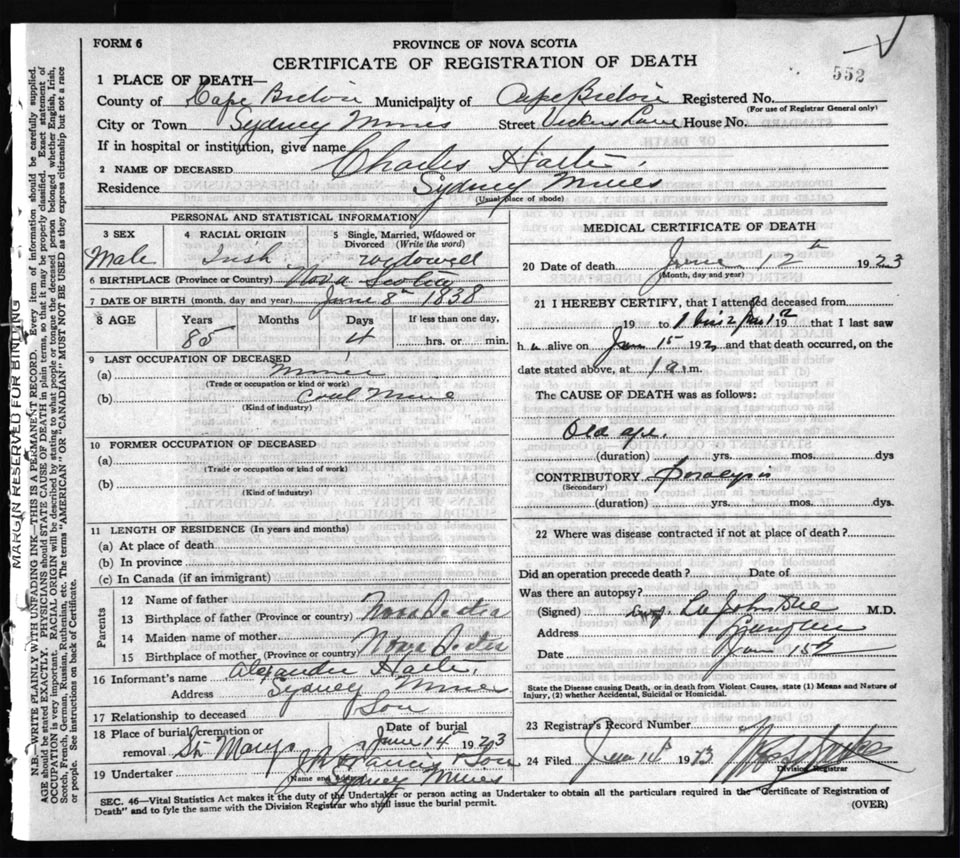 FORM 6
PROVINCE OF NOVA SCOTIA
CERTIFICATE OF REGISTRATION OF DEATH
552
1 PLACE OF DEATH—
County of Cape Breton Municipality of Cape Breton Registered No.
(For use of Registrar General only)
City or Town Sydney Mines Street Vickers Lane House No.
If in hospital or institution, give name
2 NAME OF DECEASED Charles
Residence Sydney Mines
(Usual place of abode)
PERSONAL AND STATISTICAL INFORMATION
3 SEX
Male
4 RACIAL ORIGIN
Irish
5 Single, Married, Widowed or Divorced (Write the word)
widowed
6 BIRTHPLACE (Province or Country) Nova Scotia
7 DATE OF BIRTH (month, day and year) June 8th 1838
8 AGE Years Months Days If less than one day,
85 4 hrs. or min.
9 LAST OCCUPATION OF DECEASED
(a) Miner
(Trade or occupation or kind or work)
(b) Coal Mine
(Kind of industry)
10 FORMER OCCUPATION OF DECEASED
(a)
(Trade or occupation or kind or work)
(b)
(Kind of industry)
11 LENGTH OF RESIDENCE (In years and months)
(a) At place of death
(b) In province
(c) In Canada (if an immigrant)
Parents
12 Name of father
13 Birthplace of father (Province or country) Nova Scotia
14 Maiden name of mother
15 Birthplace of mother (Province or country) Nova Scotia
16 Informant's name Alexander
Address Sydney Mines
17 Relationship to deceased Son
18 Place of burial, cremation or removal St. Marys
Date of burial June 14 1923
19 Undertaker Son
(Name and address)
Sydney Mines
MEDICAL CERTIFICATE OF DEATH
20 Date of death June 12th 1923
(Month, day and year)
21 I HEREBY CERTIFY, that I attended deceased from
19 to 19 that I last saw
h alive on June 15 192 and that death occurred, on
date stated above, at 1 a.m.
The CAUSE OF DEATH was as follows:
Old age.
(duration) yrs. mos. dys
CONTRIBUTORY Paralysis
(Secondary)
(duration) yrs. mos. dys
22 Where was disease contracted if not at place of death?
Did an operation precede death? Date of
Was there an autopsy?
(Signed) M.D.
Address
Date June 15th
State the Disease causing Death, or in death from Violent Causes, state (1) Means and Nature of Injury, (2) whether Accidental, Suicidal or Homicidal.
23 Registrar's Record Number
24 Filed June 14 1923
Division Registrar
SEC. 46—Vital Statistics Act makes it the duty of the Undertaker or person acting as Undertaker to obtain all the particulars required in the "Certificate of Registration of
Death" and to fyle the same with the Division Registrar who shall issue the burial permit.
(OVER)
MARGIN RESERVED FOR BINDING
N.B.—WRITE PLAINLY WITH UNFADING INK—THIS IS A PERMANENT RECORD. Every item of information should be carefully supplied.
AGE should be stated EXACTLY. PHYSICIANS should STATE CAUSE OF DEATH in plain terms, so that it may be properly classified. Exact statement of
OCCUPATION is very important. RACIAL ORIGIN will be described by stating to what people or tongue the deceased person belonged whether English, Irish,
Scotch, French, German, Russian, Ruthenian, etc. The terms "AMERICAN" OR "CANADIAN" MUST NOT BE USED as they express citizenship but not a race
or people. See instructions on back of Certificate.